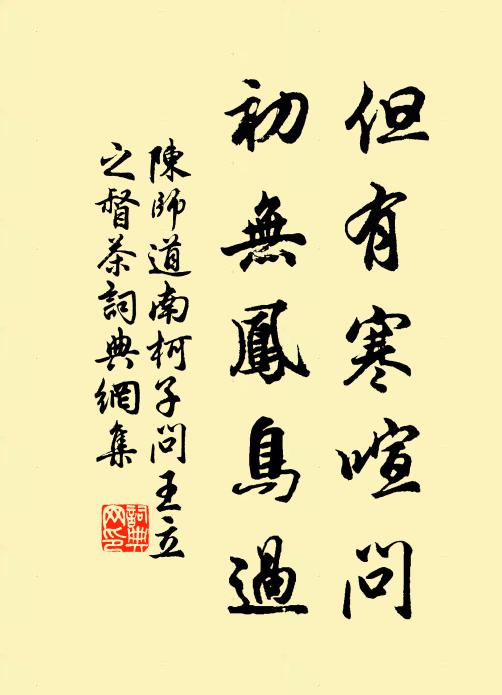 但有寒喧問
初無鳳鳥過
陳師道南柯子問王立
之督茶詞典網集
詞典
网印